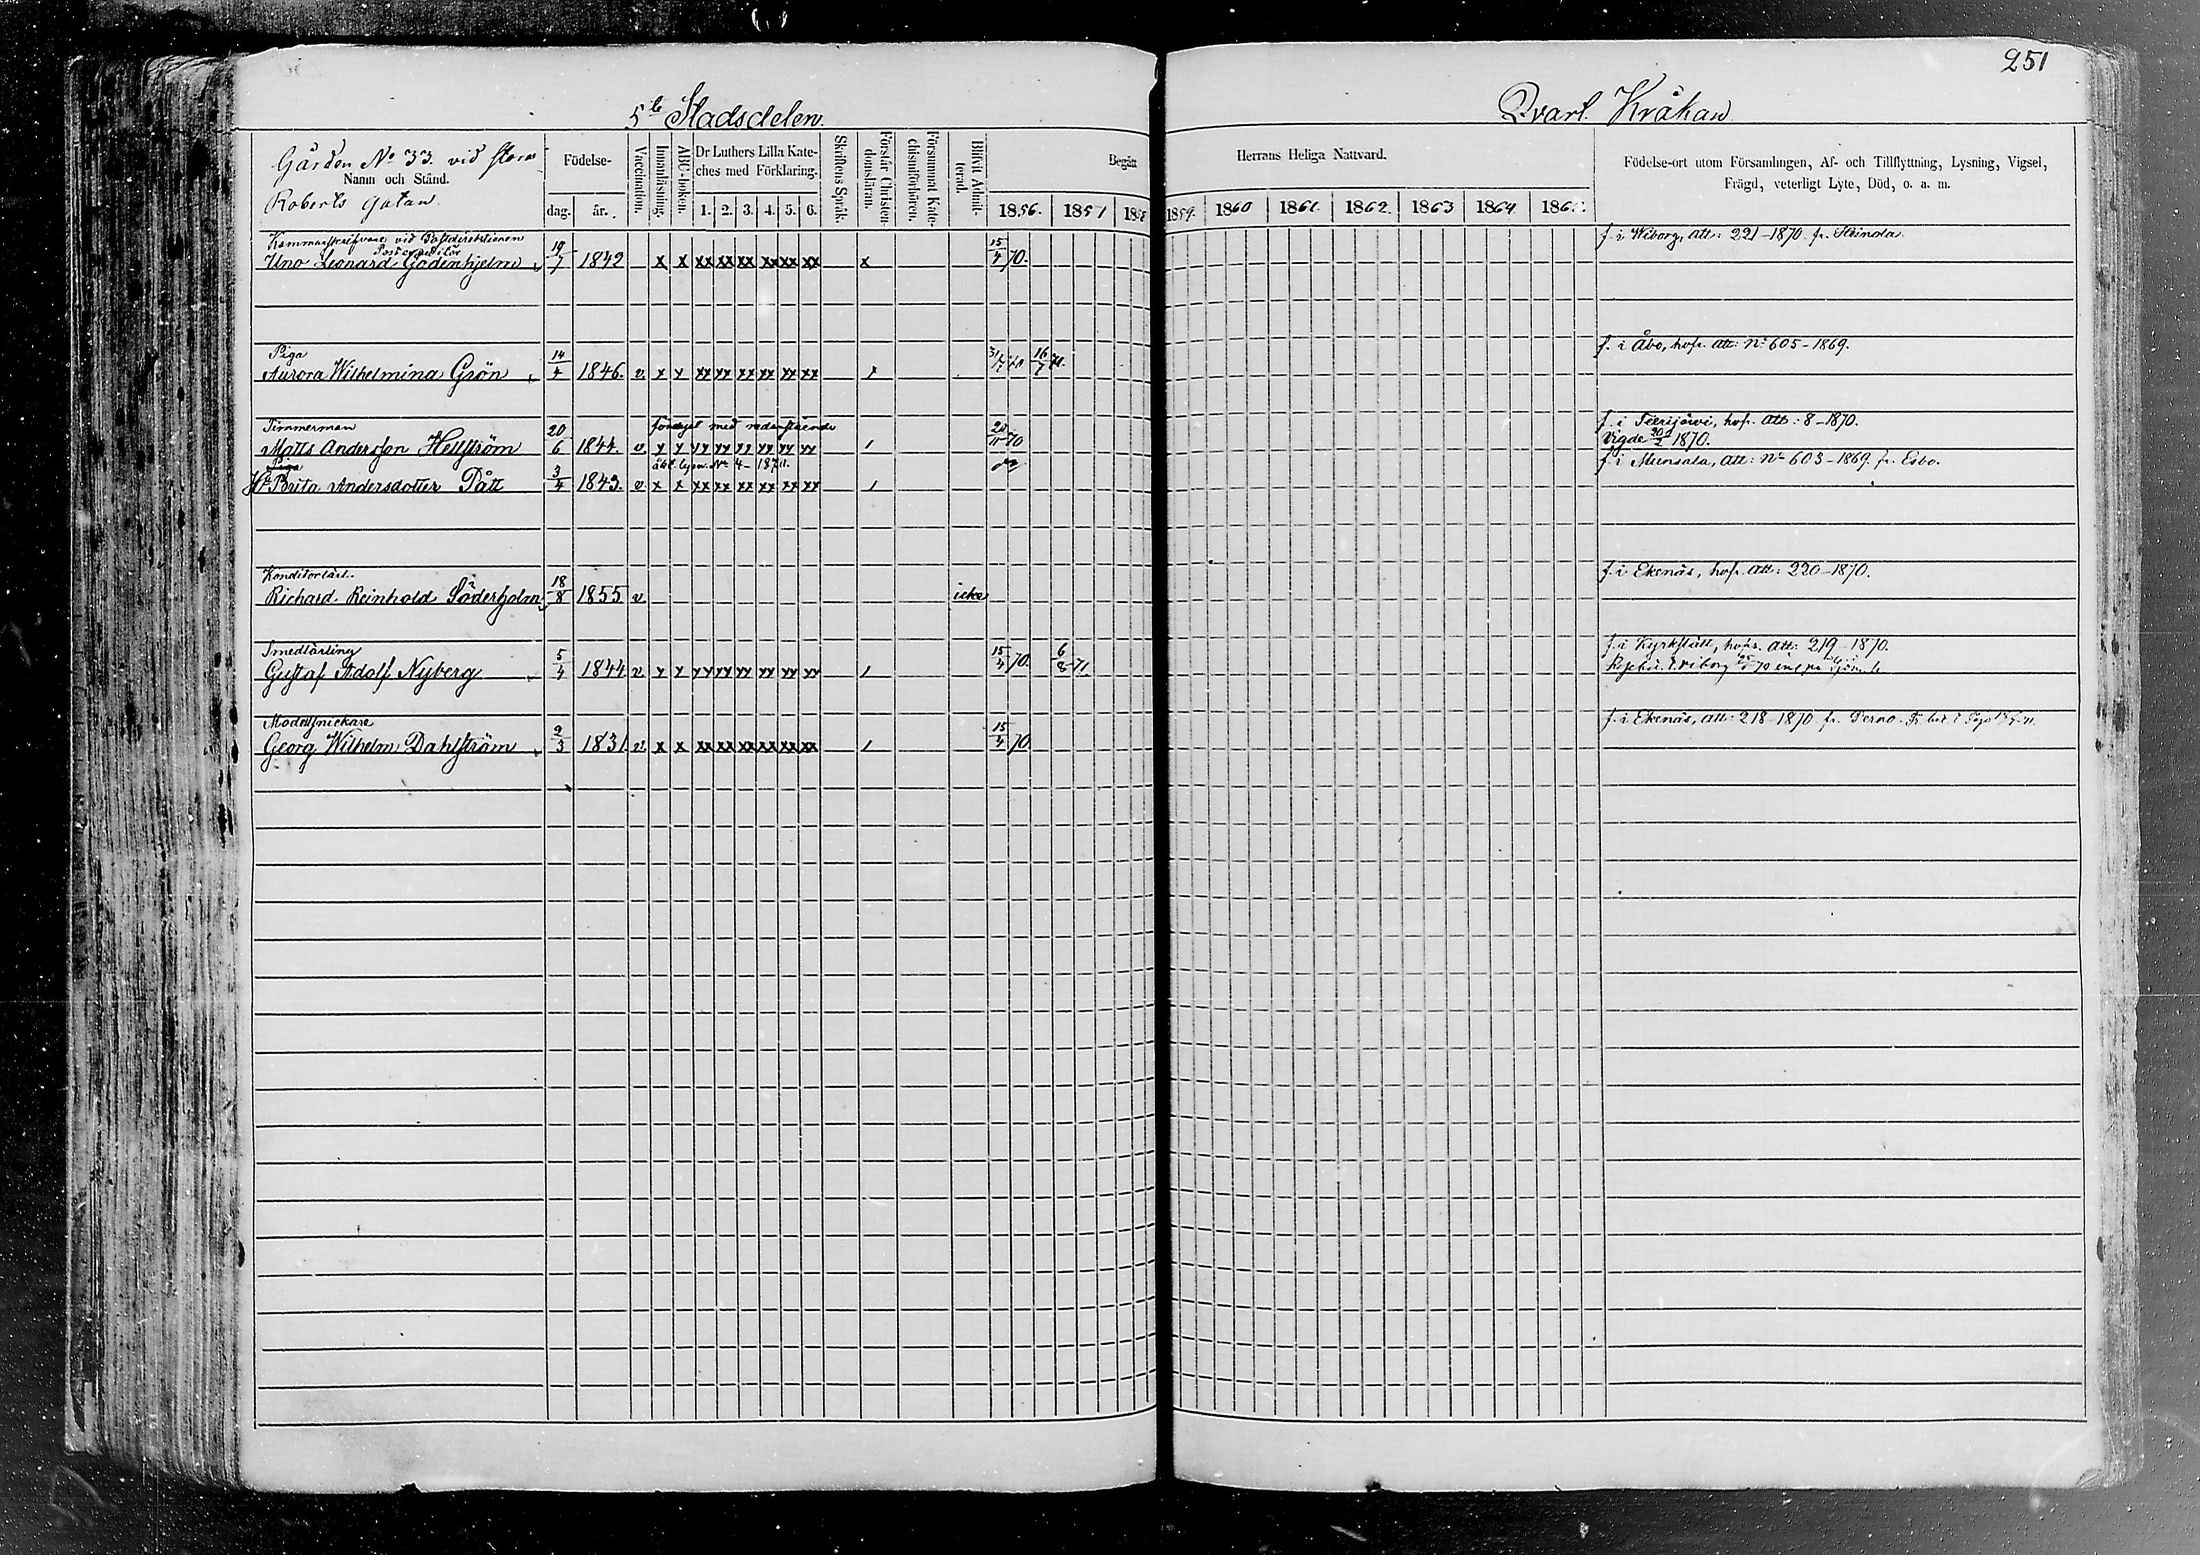 251
5te Stadsdelen.
Qvart. Kråkan
Gården No 33. vid stora
Namn och Stånd.
Roberts gatan
Födelse-
dag. år.
Vaccination.
Innanläsning.
ABC-boken.
Dr Luthers Lilla Kate-
ches med Förklaring.
1. 2. 3. 4. 5. 6.
Skriftens Språk.
Förstår Christen-
domsläran.
Försummat Kate-
chismiförhören.
Blifvit Admit-
terad.
Begått Herrans Heliga Nattvard.
1856. 1857 185 1859. 1860 1861 1862 1863 1864 186
Födelse-ort utom Församlingen, Af- och Tillflyttning, Lysning, Vigsel,
Frägd, veterligt Lyte, Död, o. a. m.
Kammarskrifvare vid Postdirektionen
Postexpeditör
Uno Leonard Godenhjelm 19/7 1842 x x xx xx xx xx xx xx x 15/4 70. f. i Wiborg, att: 221-1870 fr. Heinola.
Piga
Aurora Wilhelmina Grön 14/4 1846. v x x xx xx xx xx xx xx x 31/7 70 16/7 71. f. i Åbo, hofr. att: No 605-1869.
Timmerman
Matts Andersson Hellström 20/6 1844. v y y yy yy yy yy yy yy / 20/11 70 f. i Teerijärvi, hofr. att: 8-1870.
Vigde 20/2 1870.
Piga
Hu Brita Andersdotter Pått 3/4 1843. v x x xx xx xx xx xx xx / f. i Munsala, att: No 603-1869. fr. Esbo.
Konditorlärl.
Richard Reinhold Söderholm 18/8 1855 v icke f. i Ekenäs, hofr. att: 220-1870.
Smedlärling
Gustaf Adolf Nyberg 5/4 1844 v y y yy yy yy yy yy yy / 15/4 70. 6/8 71. f. i Kyrkslätt, hofr. att: 219-1870.
Modellsnickare
Georg Wilhelm Dahlström 2/3 1831 v x x xx xx xx xx xx xx / 15/4 70 f. i Ekenäs, att: 218-1870 fr. Perno.